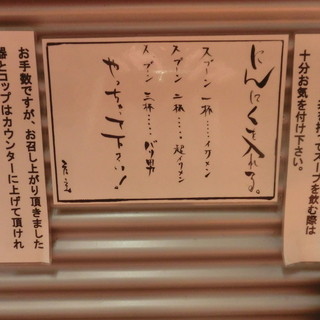 十分お気を付け下さい。
にんにくを入れる。
スプーン一杯……イケメン
スプーン二杯……超イケメン
スプーン三杯……バリ男
やっちゃって下さい!
お手数ですが、お召し上がり頂きました
器とコップはカウンターに上げて頂けれ